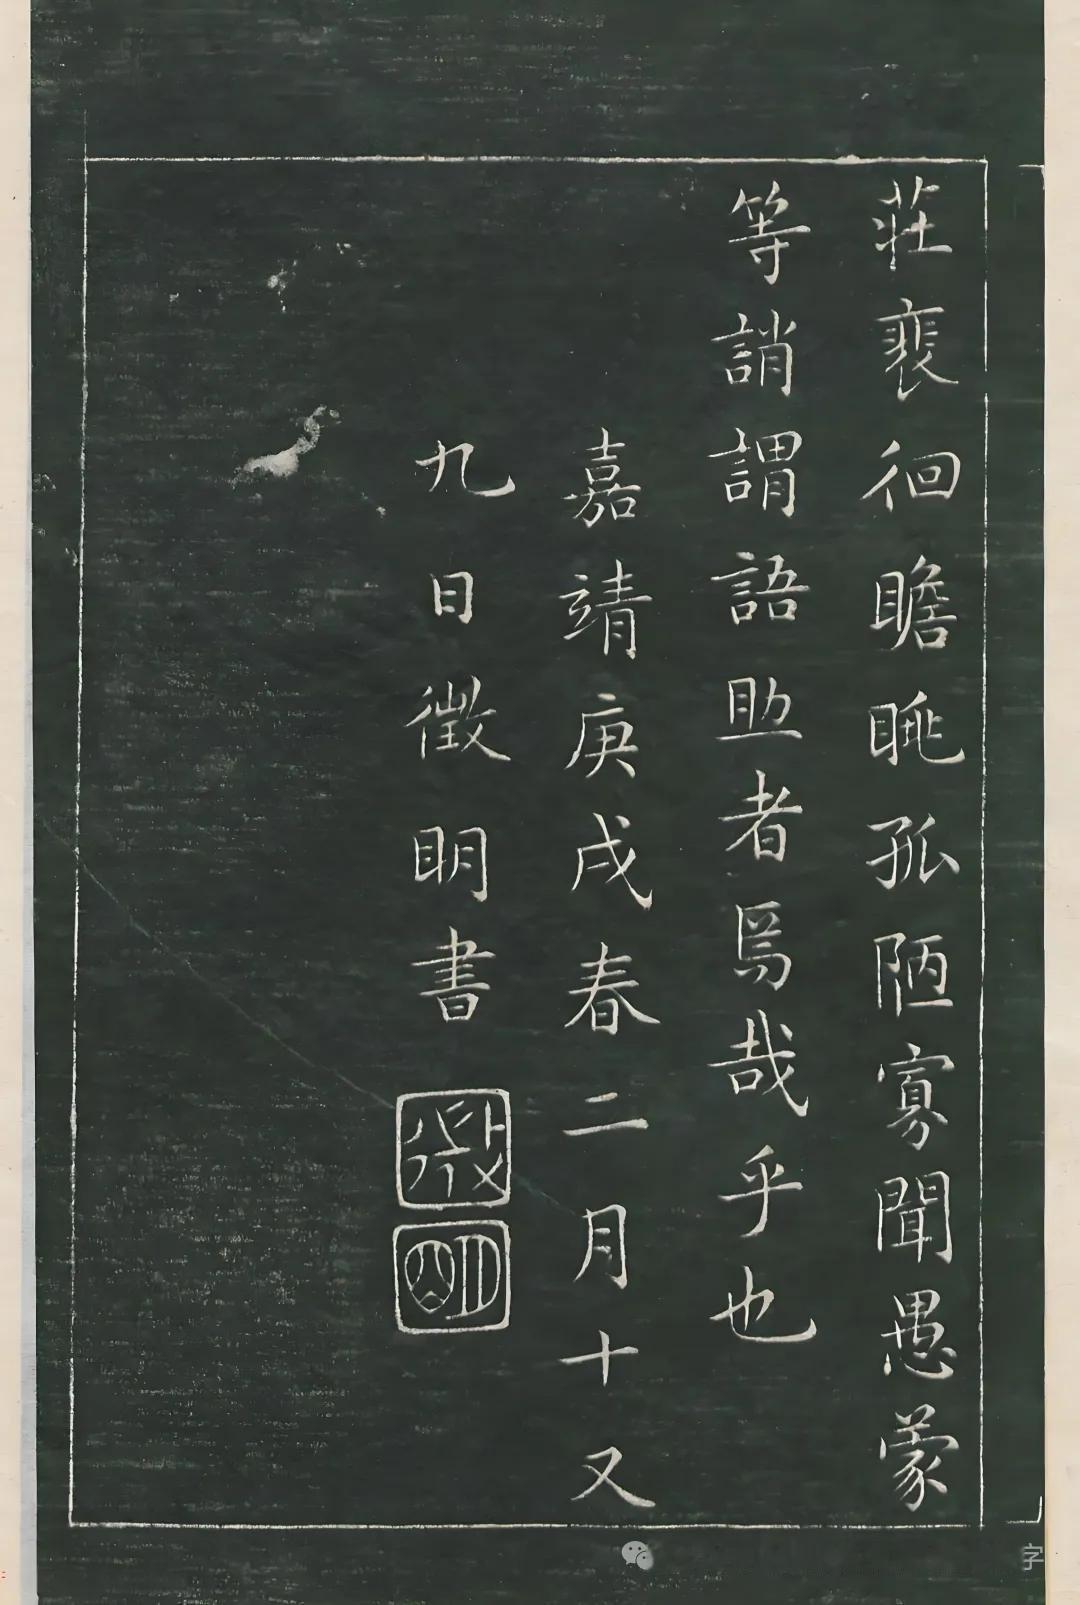 莊裵徊瞻眺孤陋寡聞愚蒙
等誚謂語助者焉哉乎也
嘉靖庚戌春二月十又
九日徵明書
徵
明
字